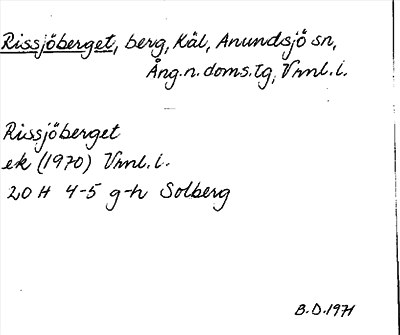 Rissjöberget, berg, Käl, Anundsjö sn,
Ång.n.doms.tg, Vrnl.l.
Rissjöberget
ek (1970) Vrnl.l.
20 H 4-5 g-h Solberg
B.D.1971